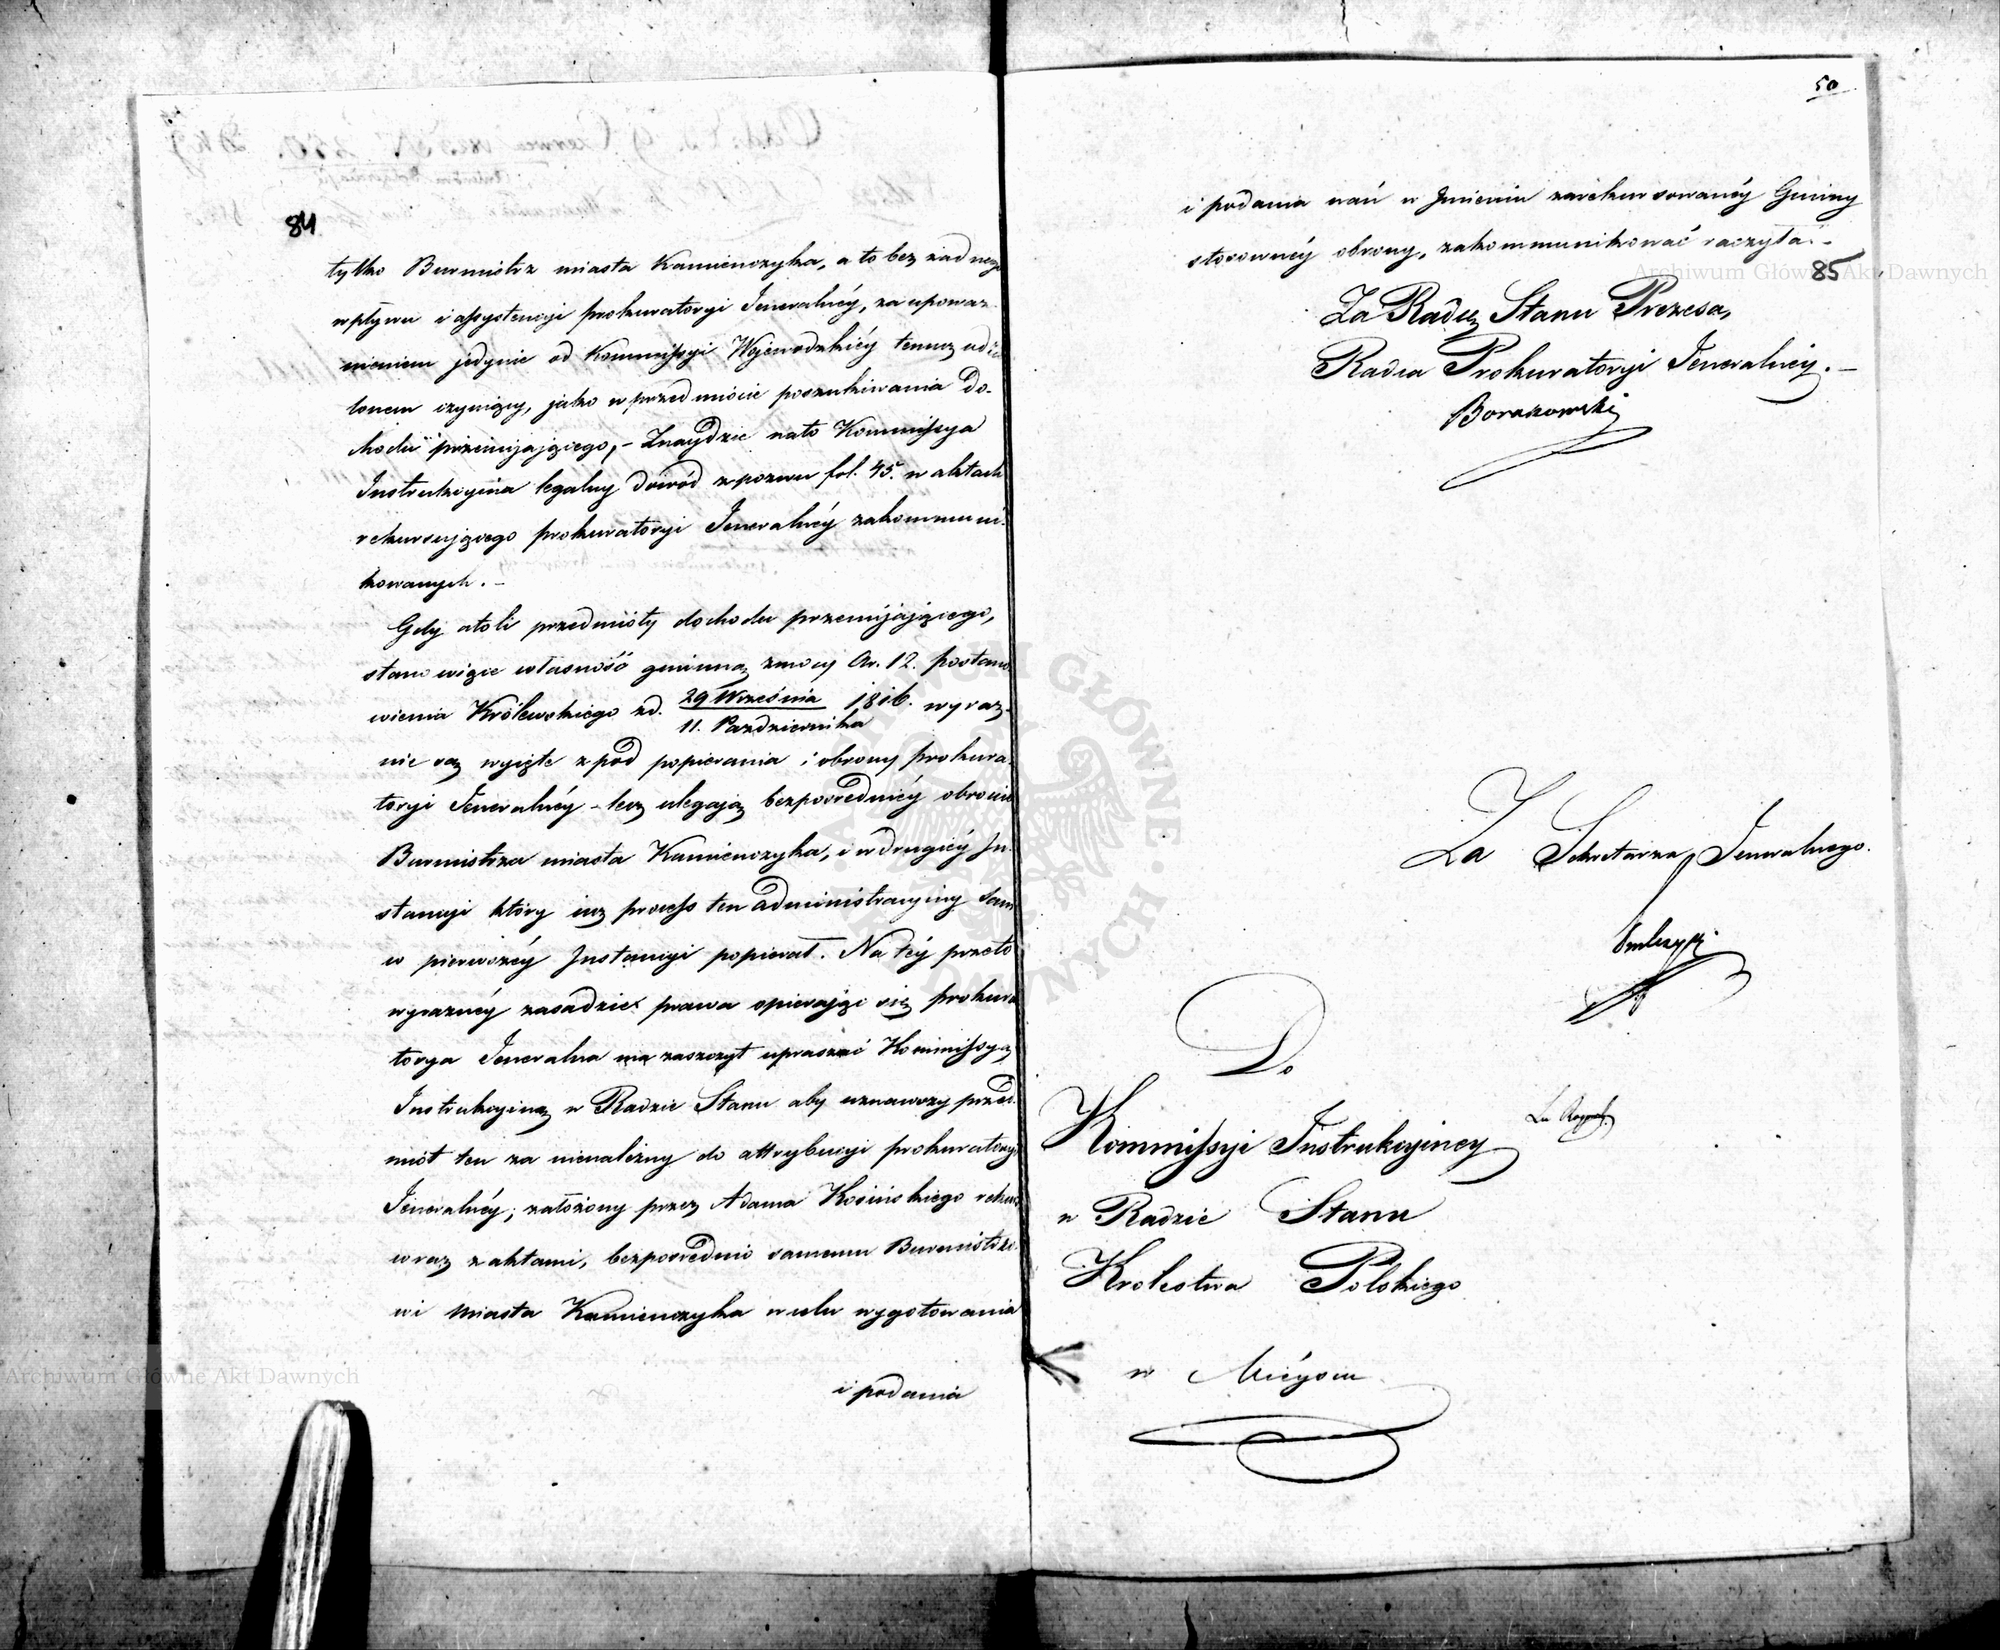 84
tylko Burmistrz miasta Kamieńczyka, a to bez żadnego
wpływu i assystencyi prokuratoryi Jeneralnéy, za upoważ-
nieniem jedynie od Kommissyi Woiewodzkiéy temuż udzie-
lonem czyniący, jako w przedmiocie poszukiwania Do-
chodu przemijającego, - Znaydzie na to Kommissya
Instrukcyina legalny dowód z pozwu fol. 45. w aktach
rekursującego prokuratoryi Jeneralnéy zakommuni-
kowanych. -
Gdy atoli przedmioty dochodu przemijającego,
stanowiące własność gminną, z mocy Ar. 12. postano-
wienia Królewskiego z d. 29 Września / 11. Października 1816. wyraź-
nie są wyięte z pod popierania i obrony prokura-
toryi Jeneralnéy - lecz ulegają bezpośrednéy obronie
Burmistrza miasta Kamieńczyka, i w drugiéy In-
stancyi który iuż process ten administracyiny sam
w pierwszéy Instancyi popierał. Na téy przeto
wyraźnéy zasadzie prawa opierając się prokura
torya Jeneralna ma zaszczyt upraszać Kommissyą
Instrukcyiną w Radzie Stanu aby uznawszy przed-
miot ten za nienależny do attrybucyi prokuratoryi
Jeneralnéy; założony przez Adama Kosińskiego rekurs
wraz z aktami, bezpośrednio samemu Burmistrzo-
wi Miasta Kamieńczyka w celu wygotowania
i podania
50
i podania nań w Imieniu zarekursowanéy Gminy
stosownéy obrony, zakommunikować raczyła. -
85
Za Radcę Stanu Prezesa,
Radca Prokuratoryi Jeneralnéy. -
Za Sekretarza Jeneralnego.
Do
Kommissyi Instrukcyiney
w Radzie Stanu
Krolestwa Polskiego
w Mieyscu
Archiwum Główne Akt Dawnych
Archiwum Główne Akt Dawnych